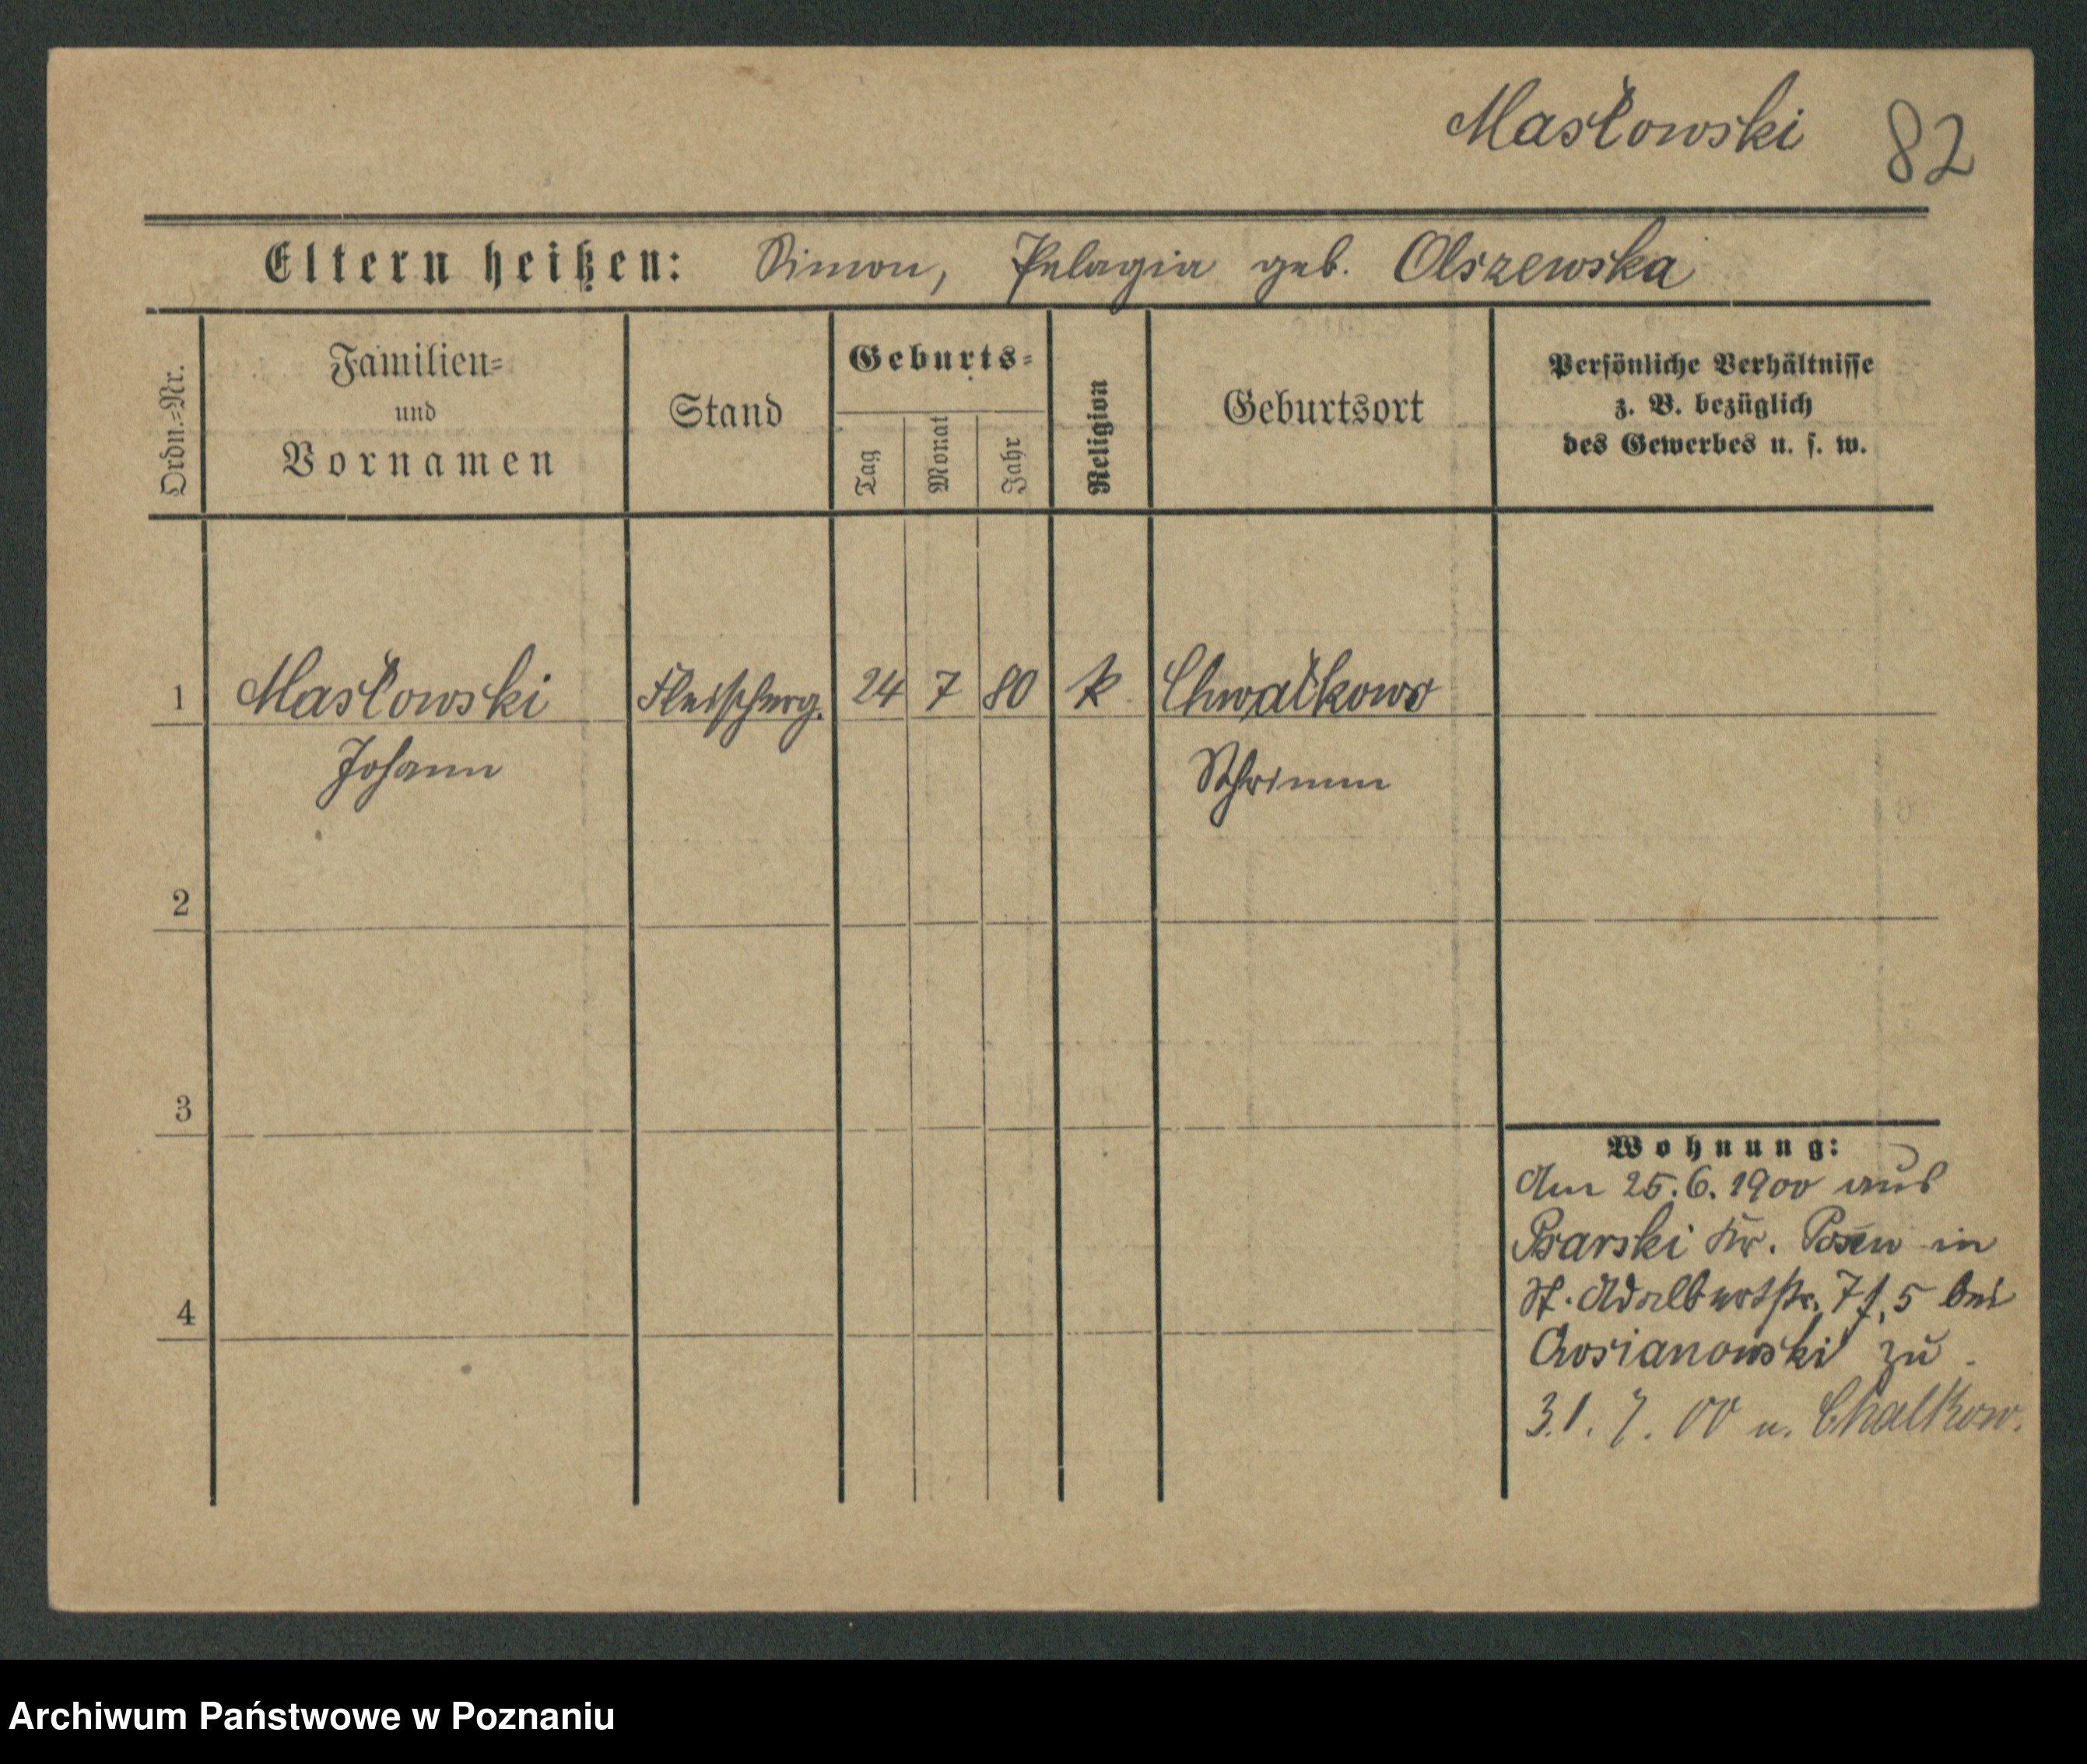 Masłowski 82
Eltern heißen: Simon, Pelagia geb. Olszewska
Ordn.=Nr.
Familien=
und
Vornamen
Stand
Geburts=
Tag
Monat
Jahr
Religion
Geburtsort
Persönliche Verhältnisse
z. B. bezüglich
des Gewerbes u. s. w.
1 Masłowski Fleischerg. 24 7 80 k Chwałkowo
Johann Schrimm
2
3
4
Wohnung:
Am 25.6.1900 aus
Psarski Kr. Posen in
St. Adalbertstr. 7 f. 5 bei
zu
31. 7. 00 n. Chalkow.
Archiwum Państwowe w Poznaniu